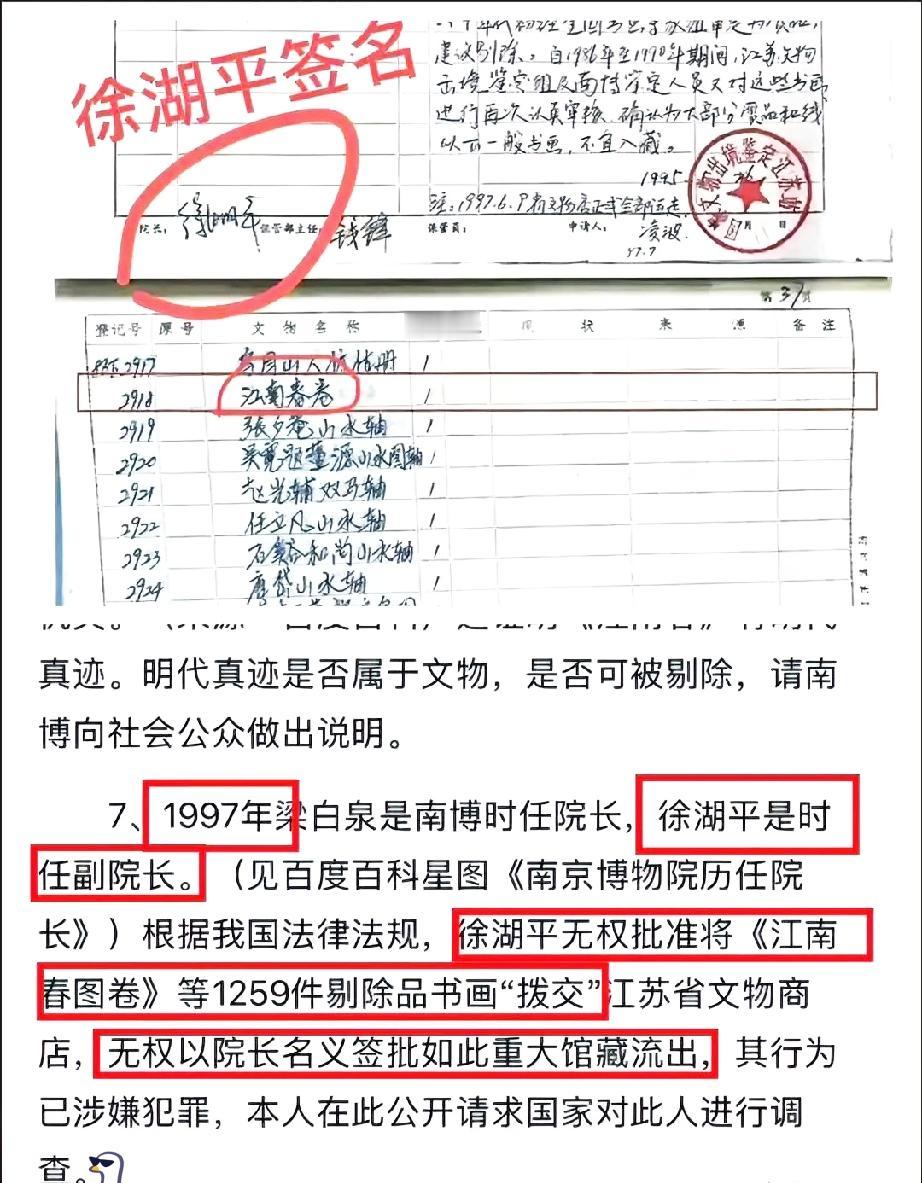 徐湖平签名
建议剔除。自1986年至1990年期间,江苏文物
出境鉴定组及南博鉴定人员又对这些书画
进行再次认真审核,确认为大部分赝品和线
以下一般书画,不宜入藏。
1995
注:1997.6.9
凌波
97.7
院长: 徐湖平 保管部主任: 钱锋 保管员: 申请人:
文物出境鉴定江苏
月 日
第 37 页
登记号 原号 文物名称 现状 来源 备注
2917 1
2918 江南春卷 1
2919 张夕庵山水轴 1
2920 吴宽题董源山水图轴 1
2921 赵光辅双马轴 1
2922 任立凡山水轴 1
2923 石溪和尚山水轴 1
2924 唐岱山水轴 1
真迹。明代真迹是否属于文物,是否可被剔除,请南
博向社会公众做出说明。
7、1997年梁白泉是南博时任院长,徐湖平是时
任副院长。(见百度百科星图《南京博物院历任院
长》)根据我国法律法规,徐湖平无权批准将《江南
春图卷》等1259件剔除品书画“拨交”江苏省文物商
店,无权以院长名义签批如此重大馆藏流出,其行为
已涉嫌犯罪,本人在此公开请求国家对此人进行调
查。